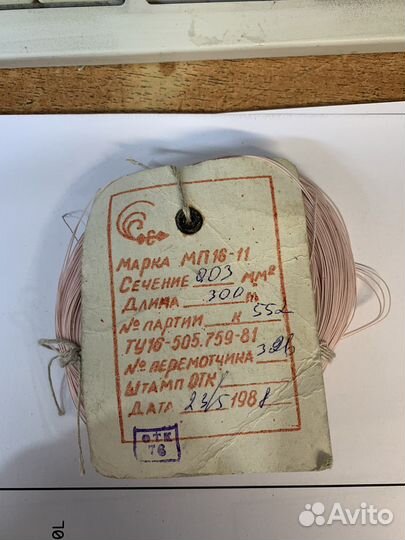 МАРКА МП16-11
СЕЧЕНИЕ 003 ММ²
ДЛИНА 300 М
№ ПАРТИИ К 552
ТУ16-505.759-81
№ ПЕРЕМОТЧИКА 326
ШТАМП ОТК
ДАТА 23/5 1988
ОТК
76
0L
Avito